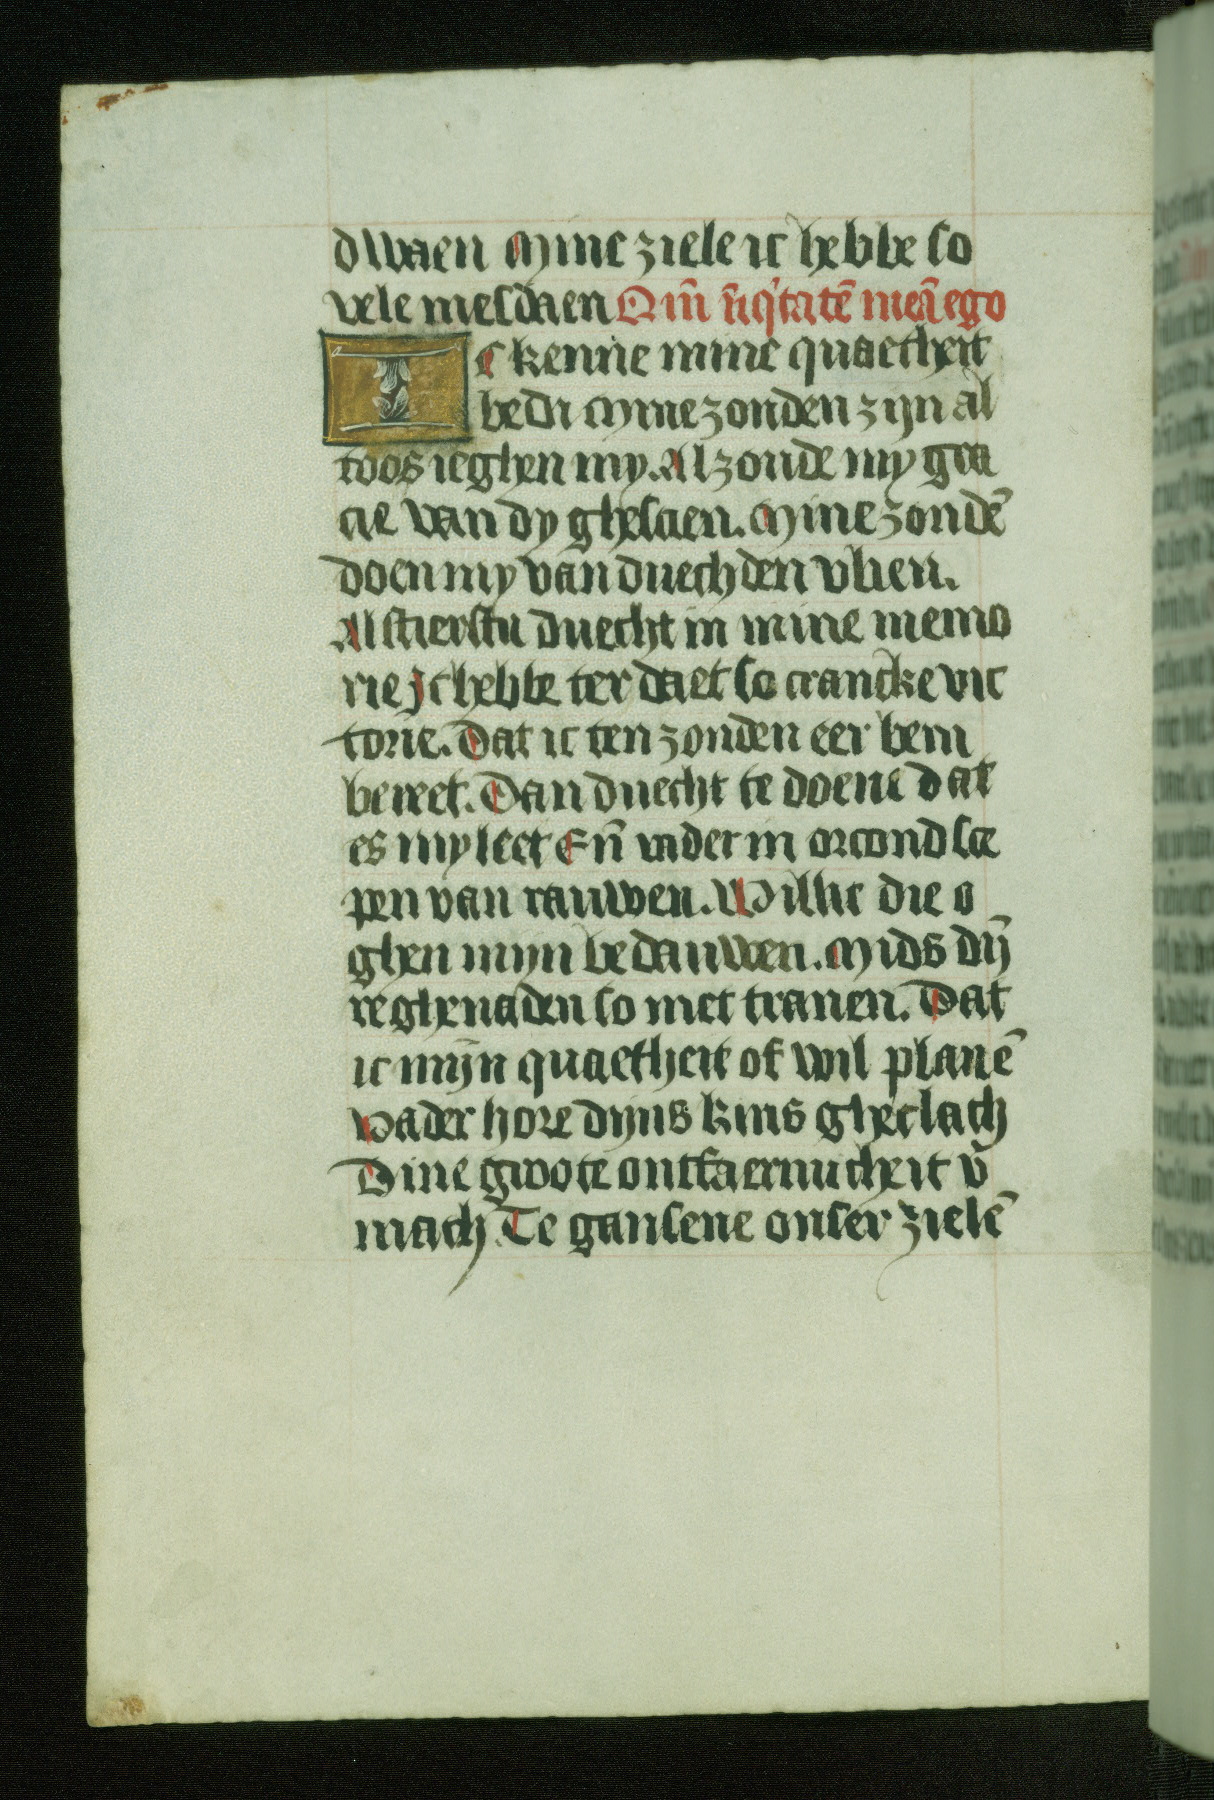 dwaen Mine ziele ic hebbe so
vele mesdaen Qm̄ īiq'tatē meā ego
Ic kenne mine quaetheit
bedi Mine zonden zijn al
toos ieghen my. Al zonde my gra
cie van dy ghescien. Mine zondē
doen my van duechden vlien.
Al stierstu duecht in mine memo
rie Ic hebbe ter daet so crancke vic
torie. Dat ic ten zonden eer bem
bereet. Dan duecht te doene dat
es my leet Eñ vader in orcondsce
pen van rauwen. Willic die o
ghen mijn bedauwen. Mids dij
re ghenaden so met tranen. Dat
ic mijn quaetheit of wil planē
Vader hore dijns kins gheclach
Dine groote ontfaermicheit v̄
mach Te gansene onser zielē